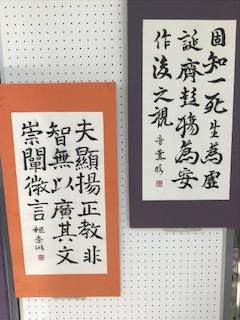 固知一死生為虛
誕齊彭殤為妄
作後之視
夫顯揚正教非
智無以廣其文
崇闡微言